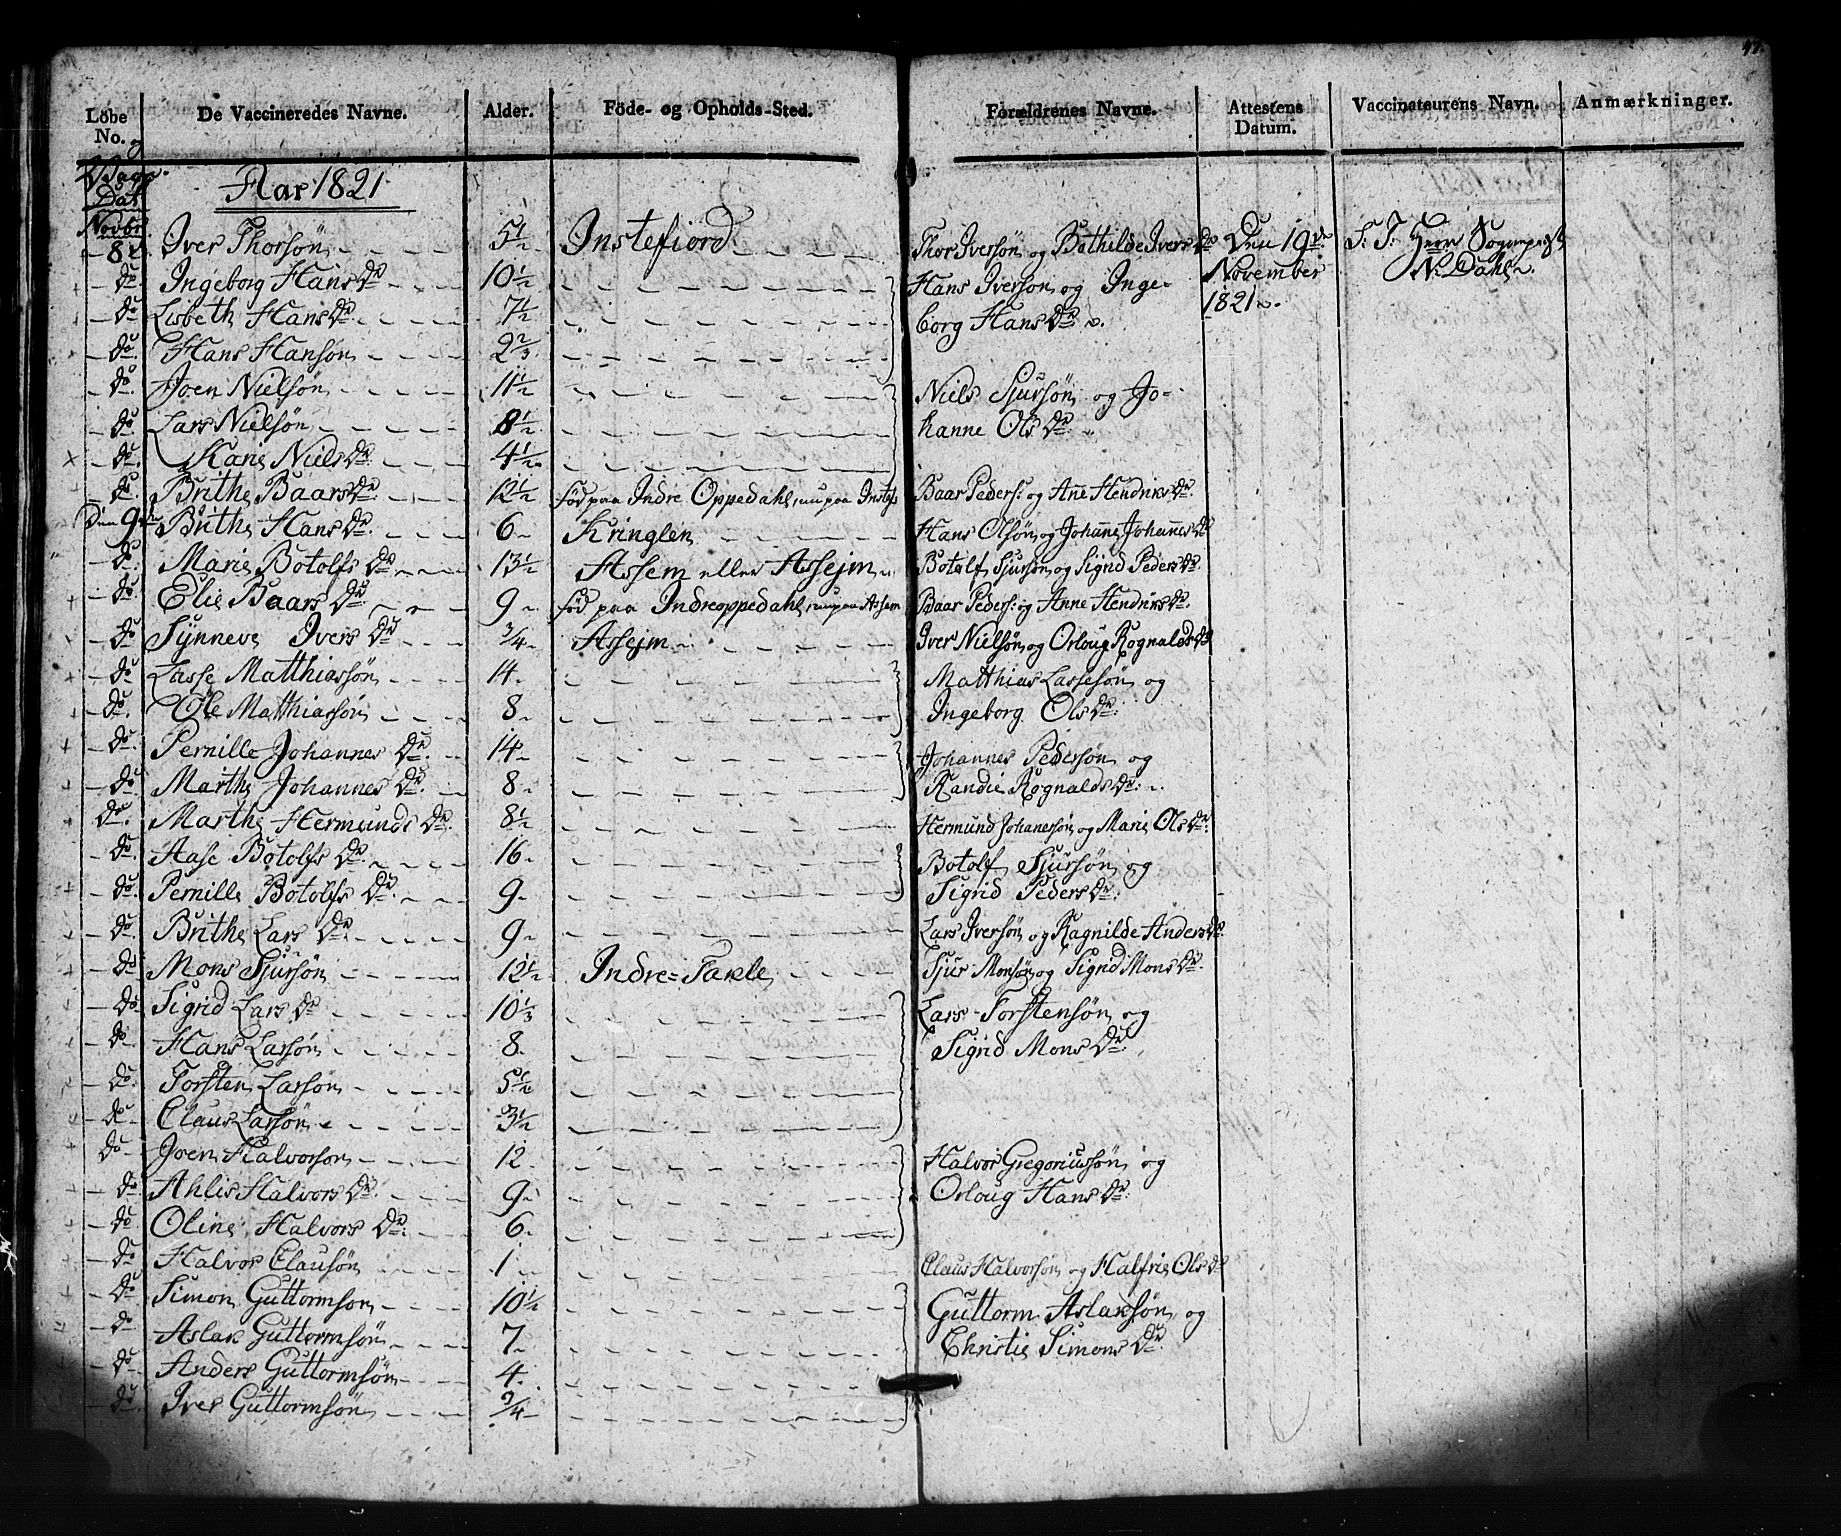 47.
Löbe No. De Vaccineredes Navne. Alder. Föde- og Opholds-Sted. Forældrenes Navne. Attestens Datum. Vaccinateurens Navn. Anmærkninger.
Dat Aar 1821
Novbr
8de Iver Thorsön 5 1/2 Instefiord Thor Iversön og Bothilde Ivers Dr Den 19de S: T: Herr Sogneprest
do Ingeborg Hans Dr 10 1/2 Hans Iverson og Inge- November N. Dahl
do Lisbeth Hans Dr 7 1/2 borg Hans Dr 1821
do Hans Hansön 2 2/3
do Joen Nielsön 11 1/2 Niels Sjursön og Jo-
do Lars Nielsön 8 1/2 hanne Ols Dr
x do Kari Niels Dr 4 1/2
do Brithe Baars Dr 12 1/2 föd paa Indre Oppedahl, nu paa Instef Baar Peders: og Anne Hendriks Dr
Den 9de Brithe Hans Dr 6 Kringlen Hans Olsön og Johanne Johannes Dr
do Marie Botolfs Dr 13 1/2 Assem eller Assejm Botolf Sjursön og Sigrid Peders Dr
do Elie Baars Dr 9 föd paa Indreoppedahl, nu paa Assem Baar Peders: og Anne Hendriks Dr
do Synneve Ivers Dr 3/4 Assejm Iver Nielsön og Orloug Rognalds Dr
do Lasse Matthiassön 14 Matthias Lassesön og
do Ole Matthiassön 8 Ingeborg Ols Dr
do Pernille Johannes Dr 14 Johannes Pedersön og
do Marthe Johannes Dr 8 Randie Rognalds Dr
do Marthe Hermunds Dr 8 1/2 Hermund Johanesön og Marie Ols Dr
do Aase Botolfs Dr 16 Botolf Sjursön og
do Pernille Botolfs Dr 9 Sigrid Peders Dr
do Brithe Lars Dr 9 Lars Iversön og Ragnilde Anders Dr
do Mons Sjursön 12 1/2 Indre-Fakle Sjur Monsön og Sigrid Mons Dr
do Sigrid Lars Dr 10 1/3 Lars Torstensön og
do Hans Larsön 8 Sigrid Mons Dr
do Torsten Larsön 5 1/2
do Claus Larsön 3 1/2
do Joen Halvorson 12 Halvor Gregoriussön og
do Ahlis Halvors Dr 9 Orloug Hans Dr
do Oline Halvors Dr 6
do Halvor Clausön 1 Claus Halvorsön og Halfrie Ols Dr
do Simon Guttormson 10 1/2 Guttorm Aslaksön og
do Aslak Guttormsön 7 Christie Simons Dr
do Anders Guttormsön 4
do Iver Guttormsön 3/4